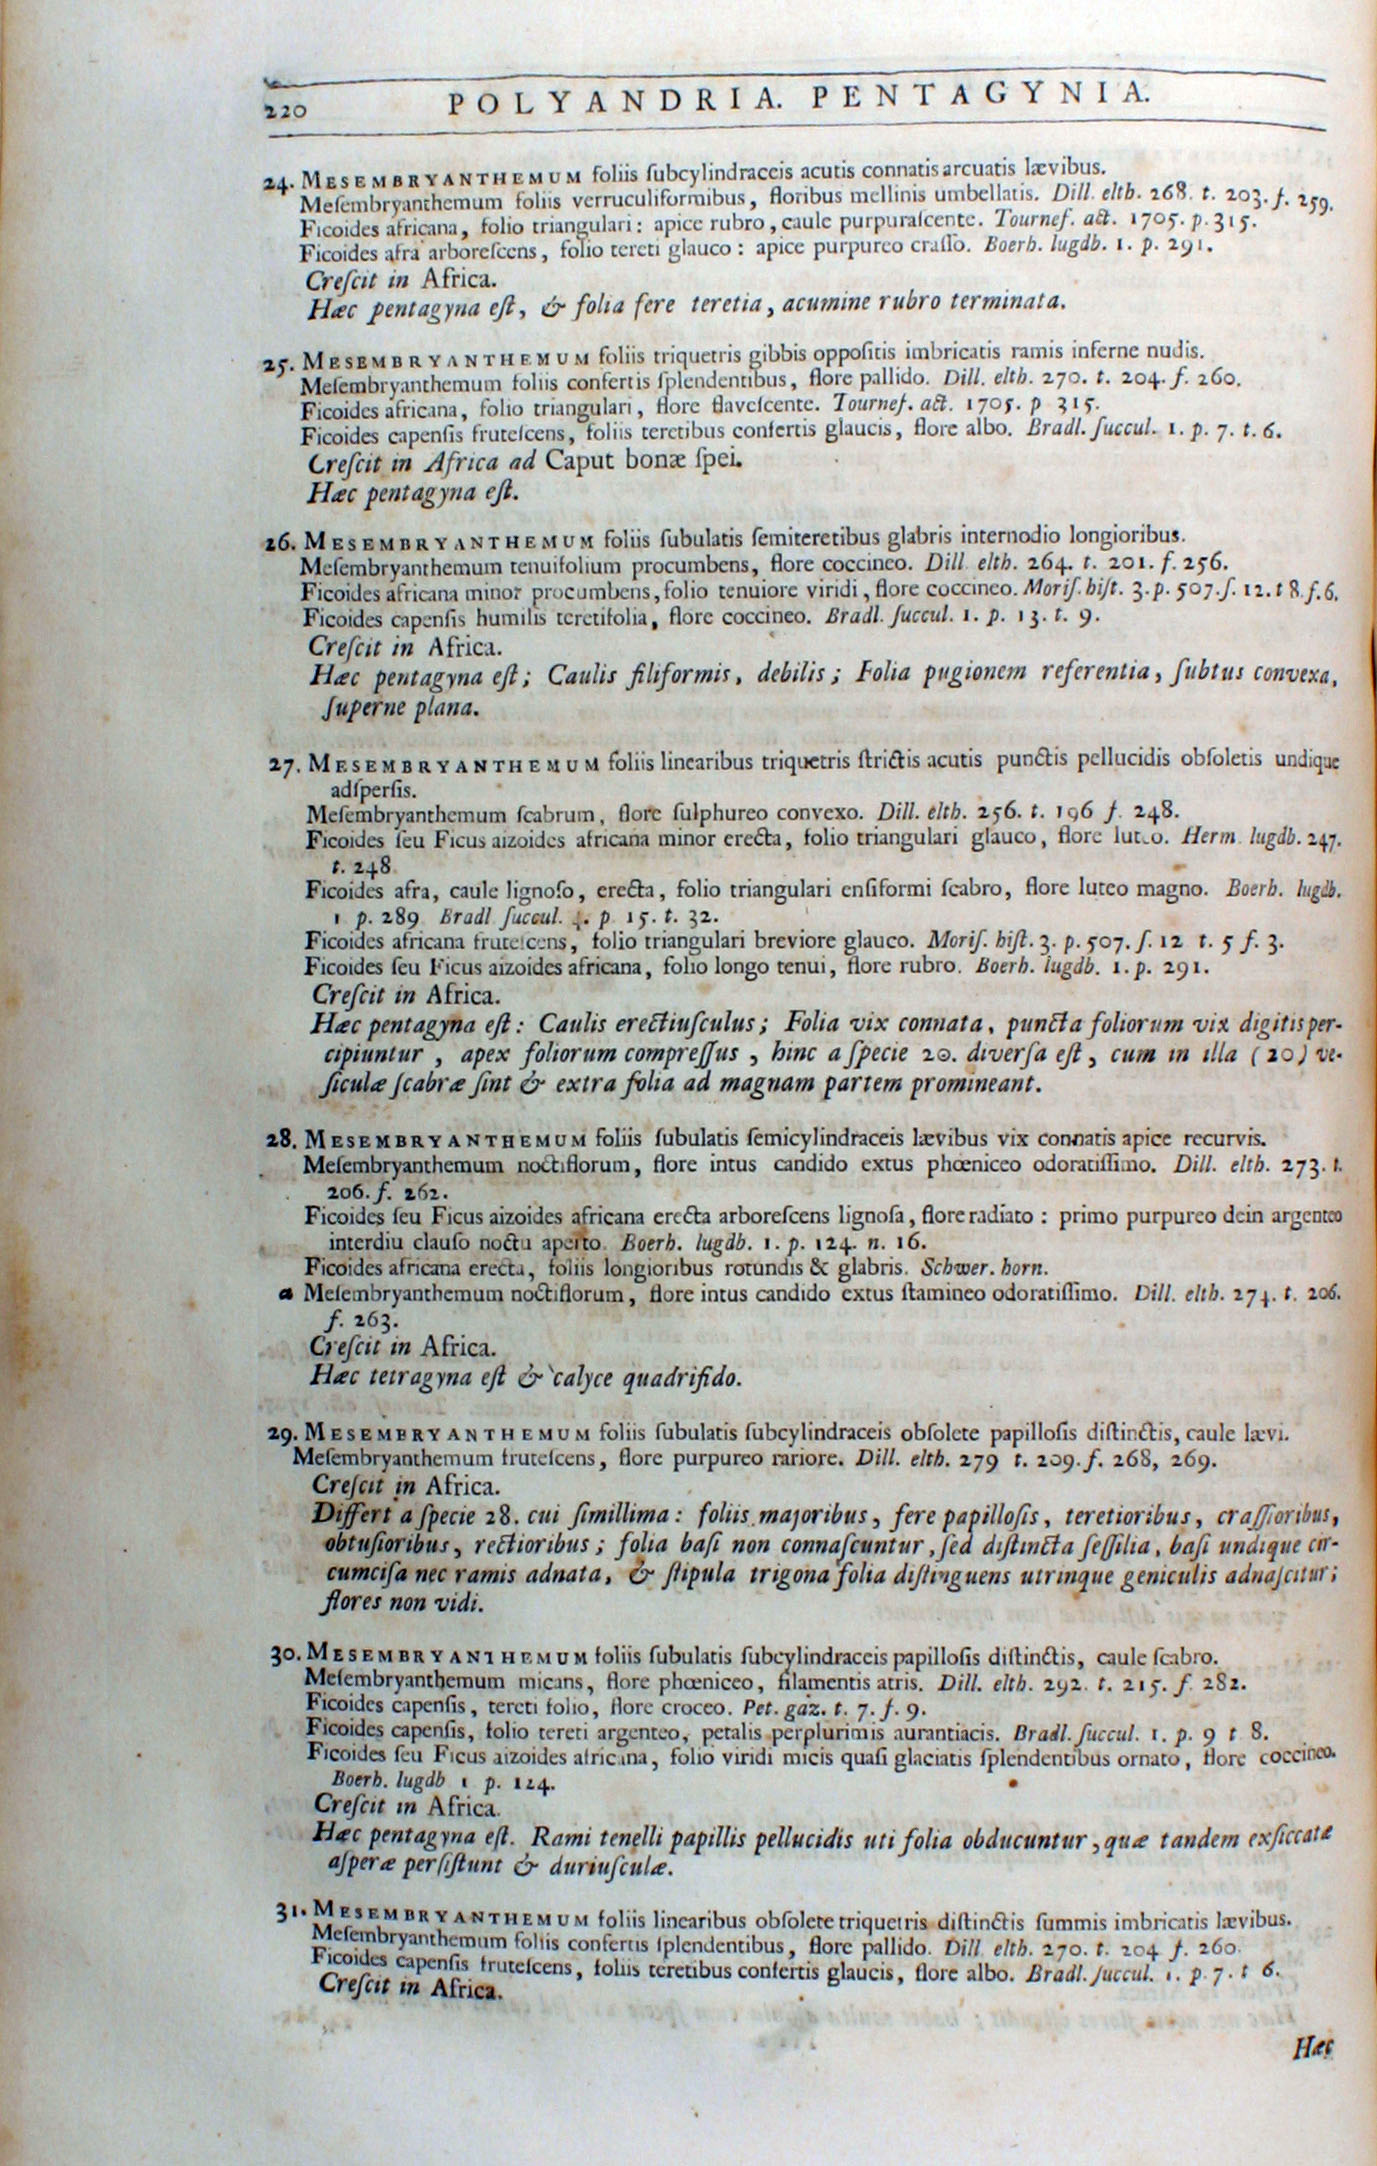 220 POLYANDRIA. PENTAGYNIA.
24. MESEMBRYANTHEMUM foliis ſubcylindraceis acutis connatis arcuatis lævibus.
Meſembryanthemum foliis verruculiformibus, floribus mellinis umbellatis. Dill. elth. 268. t. 203. f. 259.
Ficoides africana, folio triangulari: apice rubro, caule purpuraſcente. Tournef. act. 1705. p. 315.
Ficoides afra arboreſcens, folio tereti glauco: apice purpureo craſſo. Boerh. lugdb. 1. p. 291.
Creſcit in Africa.
Hæc pentagyna eſt, & folia fere teretia, acumine rubro terminata.
25. MESEMBRYANTHEMUM foliis triquetris gibbis oppoſitis imbricatis ramis inferne nudis.
Meſembryanthemum foliis confertis ſplendentibus, flore pallido. Dill. elth. 270. t. 204. f. 260.
Ficoides africana, folio triangulari, flore flaveſcente. Tournef. act. 1705. p 315.
Ficoides capenſis fruteſcens, foliis teretibus confertis glaucis, flore albo. Bradl. ſuccul. 1. p. 7. t. 6.
Creſcit in Africa ad Caput bonæ ſpei.
Hæc pentagyna eſt.
26. MESEMBRYANTHEMUM foliis ſubulatis ſemiteretibus glabris internodio longioribus.
Meſembryanthemum tenuifolium procumbens, flore coccineo. Dill. elth. 264. t. 201. f. 256.
Ficoides africana minor procumbens, folio tenuiore viridi, flore coccineo. Moriſ. hiſt. 3. p. 507. ſ. 12. t 8. f. 6.
Ficoides capenſis humilis teretifolia, flore coccineo. Bradl. ſuccul. 1. p. 13. t. 9.
Creſcit in Africa.
Hæc pentagyna eſt; Caulis filiformis, debilis; Folia pugionem referentia, ſubtus convexa,
ſuperne plana.
27. MESEMBRYANTHEMUM foliis linearibus triquetris ſtrictis acutis punctis pellucidis obſoletis undique
adſperſis.
Meſembryanthemum ſcabrum, flore ſulphureo convexo. Dill. elth. 256. t. 196 f. 248.
Ficoides ſeu Ficus aizoides africana minor erecta, folio triangulari glauco, flore luteo. Herm. lugdb. 247.
t. 248.
Ficoides afra, caule lignoſo, erecta, folio triangulari enſiformi ſcabro, flore luteo magno. Boerh. lugdb.
1 p. 289 Bradl ſuccul. 4. p 15. t. 32.
Ficoides africana fruteſcens, folio triangulari breviore glauco. Moriſ. hiſt. 3. p. 507. ſ. 12 t. 5 f. 3.
Ficoides ſeu Ficus aizoides africana, folio longo tenui, flore rubro. Boerh. lugdb. 1. p. 291.
Creſcit in Africa.
Hæc pentagyna eſt: Caulis erectiuſculus; Folia vix connata, puncta foliorum vix digitis per-
cipiuntur, apex foliorum compreſſus, hinc a ſpecie 20. diverſa eſt, cum in illa (20) ve-
ſiculæ ſcabræ ſint & extra folia ad magnam partem promineant.
28. MESEMBRYANTHEMUM foliis ſubulatis ſemicylindraceis lævibus vix connatis apice recurvis.
Meſembryanthemum noctiflorum, flore intus candido extus phœniceo odoratiſſimo. Dill. elth. 273. t.
206. f. 262.
Ficoides ſeu Ficus aizoides africana erecta arboreſcens lignoſa, flore radiato: primo purpureo dein argenteo
interdiu clauſo noctu aperto. Boerh. lugdb. 1. p. 124. n. 16.
Ficoides africana erecta, foliis longioribus rotundis & glabris. Schwer. horn.
a Meſembryanthemum noctiflorum, flore intus candido extus ſtamineo odoratiſſimo. Dill. elth. 274. t. 206.
f. 263.
Creſcit in Africa.
Hæc tetragyna eſt & calyce quadrifido.
29. MESEMBRYANTHEMUM foliis ſubulatis ſubcylindraceis obſolete papilloſis diſtinctis, caule lævi.
Meſembryanthemum fruteſcens, flore purpureo rariore. Dill. elth. 279 t. 209. f. 268, 269.
Creſcit in Africa.
Differt a ſpecie 28. cui ſimillima: foliis majoribus, fere papilloſis, teretioribus, craſſioribus,
obtuſioribus, rectioribus; folia baſi non connaſcuntur, ſed diſtincta ſeſſilia, baſi undique cir-
cumciſa nec ramis adnata, & ſtipula trigona folia diſtinguens utrinque geniculis adnaſcitur;
flores non vidi.
30. MESEMBRYANTHEMUM foliis ſubulatis ſubcylindraceis papilloſis diſtinctis, caule ſcabro.
Meſembryanthemum micans, flore phœniceo, filamentis atris. Dill. elth. 292. t. 215. f. 282.
Ficoides capenſis, tereti folio, flore croceo. Pet. gaz. t. 7. f. 9.
Ficoides capenſis, folio tereti argenteo, petalis perplurimis aurantiacis. Bradl. ſuccul. 1. p. 9 t 8.
Ficoides ſeu Ficus aizoides africana, folio viridi micis quaſi glaciatis ſplendentibus ornato, flore coccineo.
Boerh. lugdb 1 p. 124.
Creſcit in Africa.
Hæc pentagyna eſt. Rami tenelli papillis pellucidis uti folia obducuntur, quæ tandem exſiccatæ
aſperæ perſiſtunt & duriuſculæ.
31. MESEMBRYANTHEMUM foliis linearibus obſolete triquetris diſtinctis ſummis imbricatis lævibus.
Meſembryanthemum foliis confertis ſplendentibus, flore pallido. Dill. elth. 270. t. 204 f. 260.
Ficoides capenſis fruteſcens, foliis teretibus confertis glaucis, flore albo. Bradl. ſuccul. 1. p. 7. t 6.
Creſcit in Africa.
Hæc